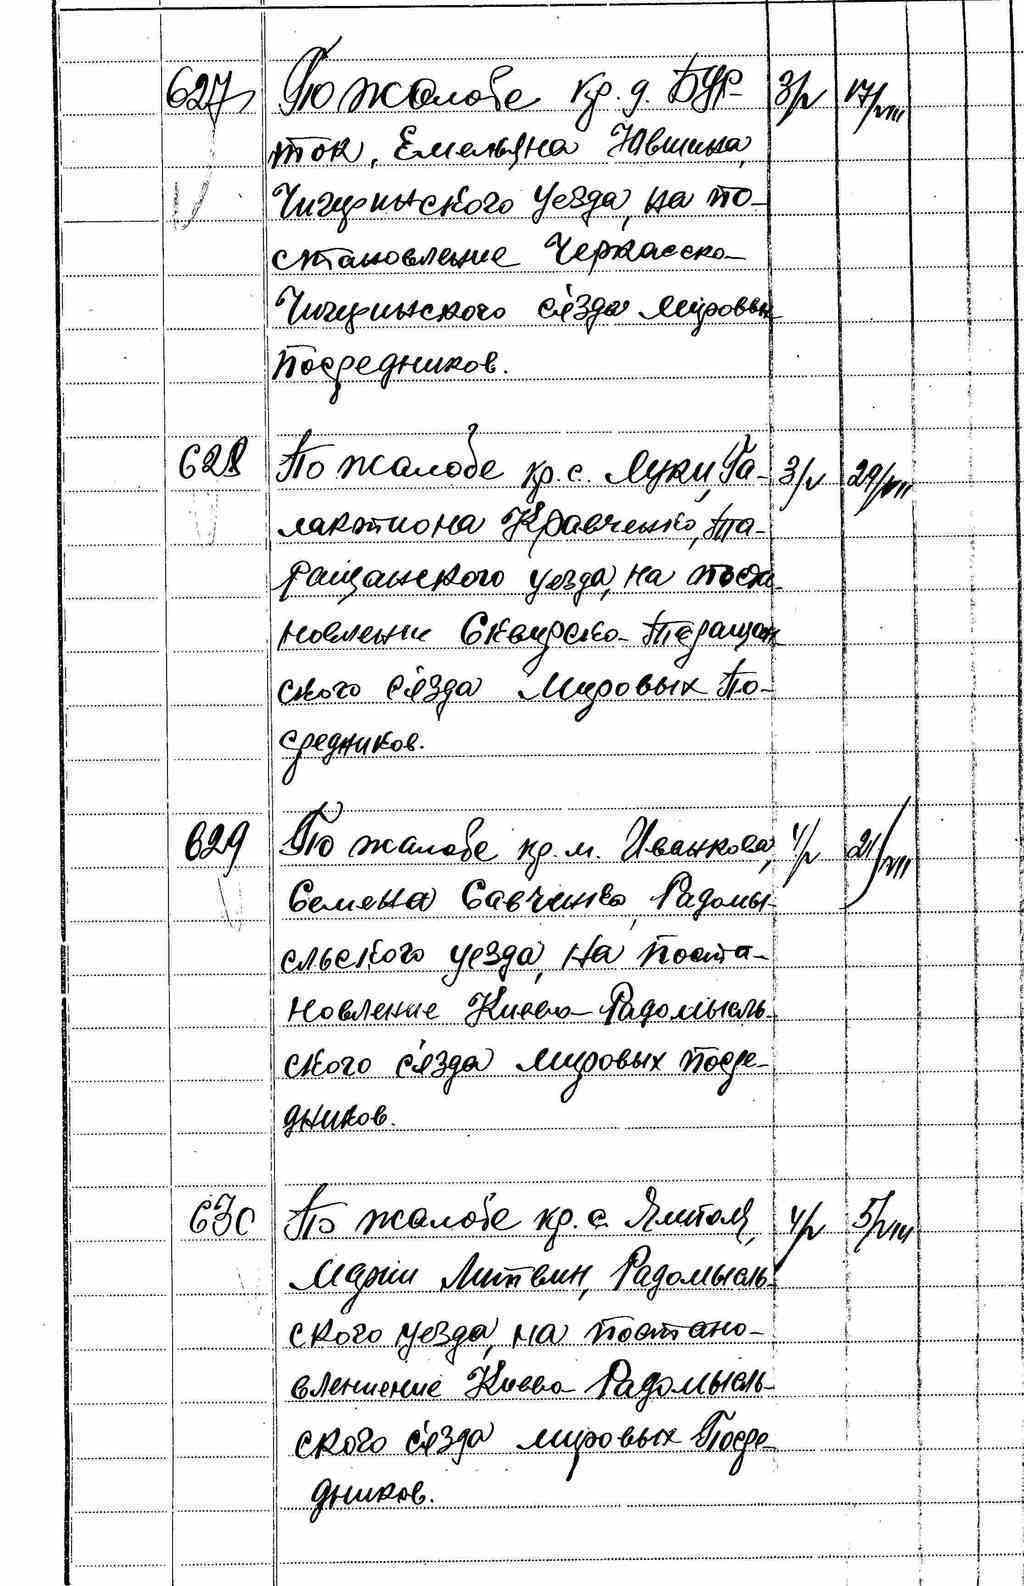 627 По жалобе кр. д. Бур- 3/V 17/VIII
ток, Емельяна Явшина,
Чигиринского уезда, на по-
становление Черкасско-
Чигиринского с'езда Мировых
Посредников.
628 По жалобе кр. с. Луки, Га- 3/V 29/VIII
лактиона Кравченко, Та-
ращанского уезда, на поста-
новление Сквирско-Таращан
ского с'езда Мировых По-
средников.
629 По жалобе кр. м. Иванкова, 4/V 21/VIII
Семена Савченко, Радомы-
сльского уезда, на поста-
новление Киево-Радомысль-
ского с'езда мировых посре-
дников.
630 По жалобе кр. с. Ялитоля, 4/V 5/VIII
Марии Литвин, Радомысль-
ского уезда, на постано-
влениение Киево-Радомысль-
ского с'езда мировых Посре-
дников.